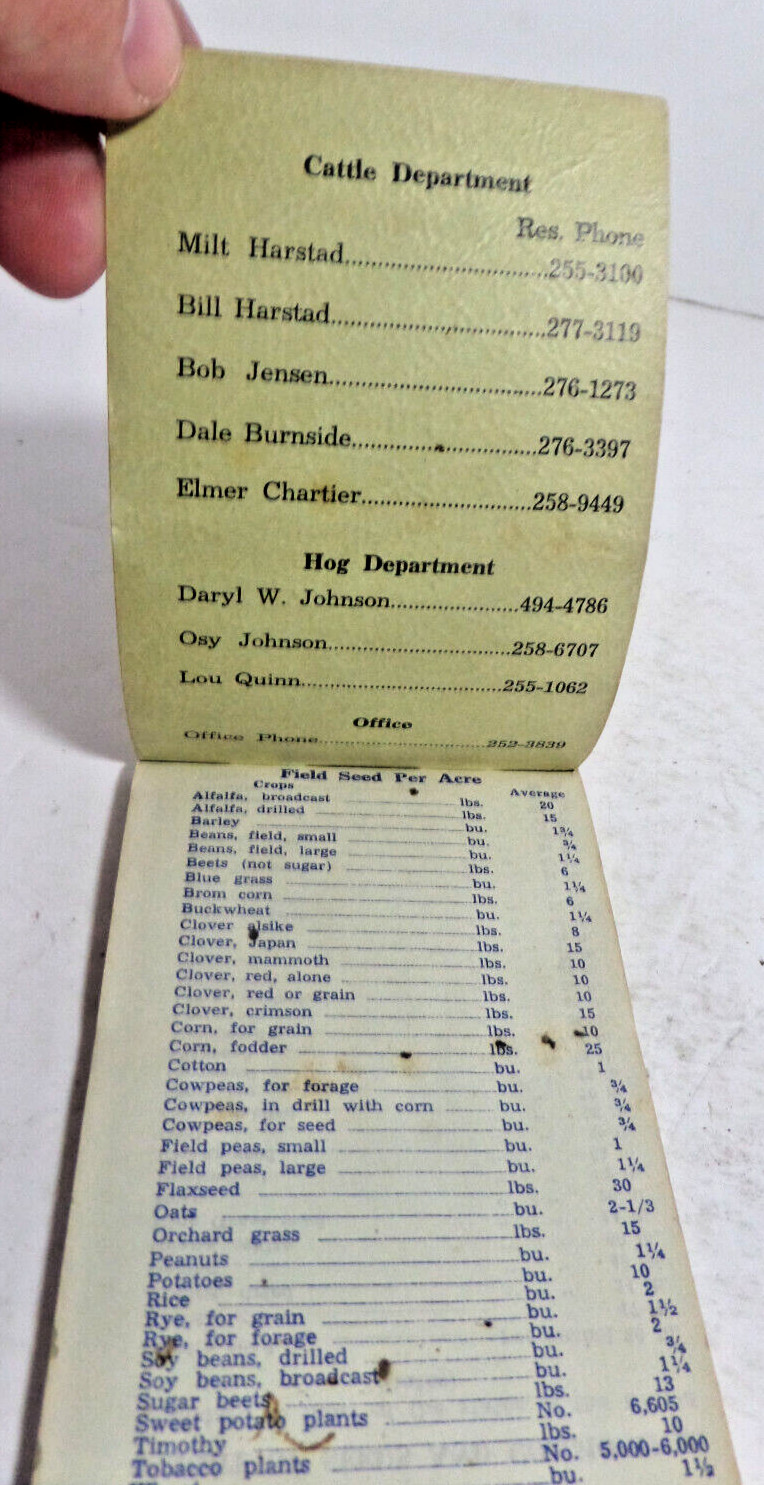 Cattle Department
Res. Phone
Milt Harstad..............................255-3100
Bill Harstad..............................277-3119
Bob Jensen..............................276-1273
Dale Burnside..............................276-3397
Elmer Chartier..............................258-9449
Hog Department
Daryl W. Johnson......................494-4786
Osy Johnson..............................258-6707
Lou Quinn..............................255-1062
Office
Office Phone..............................252-3839
Field Seed Per Acre
Crops Average
Alfalfa, broadcast .......... lbs. 20
Alfalfa, drilled .......... lbs. 15
Barley .......... bu. 1¾
Beans, field, small .......... bu. ¾
Beans, field, large .......... bu. 1¼
Beets (not sugar) .......... lbs. 6
Blue grass .......... bu. 1¼
Brom corn .......... lbs. 6
Buckwheat .......... bu. 1¼
Clover alsike .......... lbs. 8
Clover, Japan .......... lbs. 15
Clover, mammoth .......... lbs. 10
Clover, red, alone .......... lbs. 10
Clover, red or grain .......... lbs. 10
Clover, crimson .......... lbs. 15
Corn, for grain .......... lbs. 10
Corn, fodder .......... lbs. 25
Cotton .......... bu. 1
Cowpeas, for forage .......... bu. ¾
Cowpeas, in drill with corn .......... bu. ¾
Cowpeas, for seed .......... bu. ¾
Field peas, small .......... bu. 1
Field peas, large .......... bu. 1¼
Flaxseed .......... lbs. 30
Oats .......... bu. 2-1/3
Orchard grass .......... lbs. 15
Peanuts .......... bu. 1¼
Potatoes .......... bu. 10
Rice .......... bu. 2
Rye, for grain .......... bu. 1½
Rye, for forage .......... bu. 2
Soy beans, drilled .......... bu. ¾
Soy beans, broadcast .......... bu. 1¼
Sugar beets .......... lbs. 13
Sweet potato plants .......... No. 6,605
Timothy .......... lbs. 10
Tobacco plants .......... No. 5,000-6,000
bu. 1½